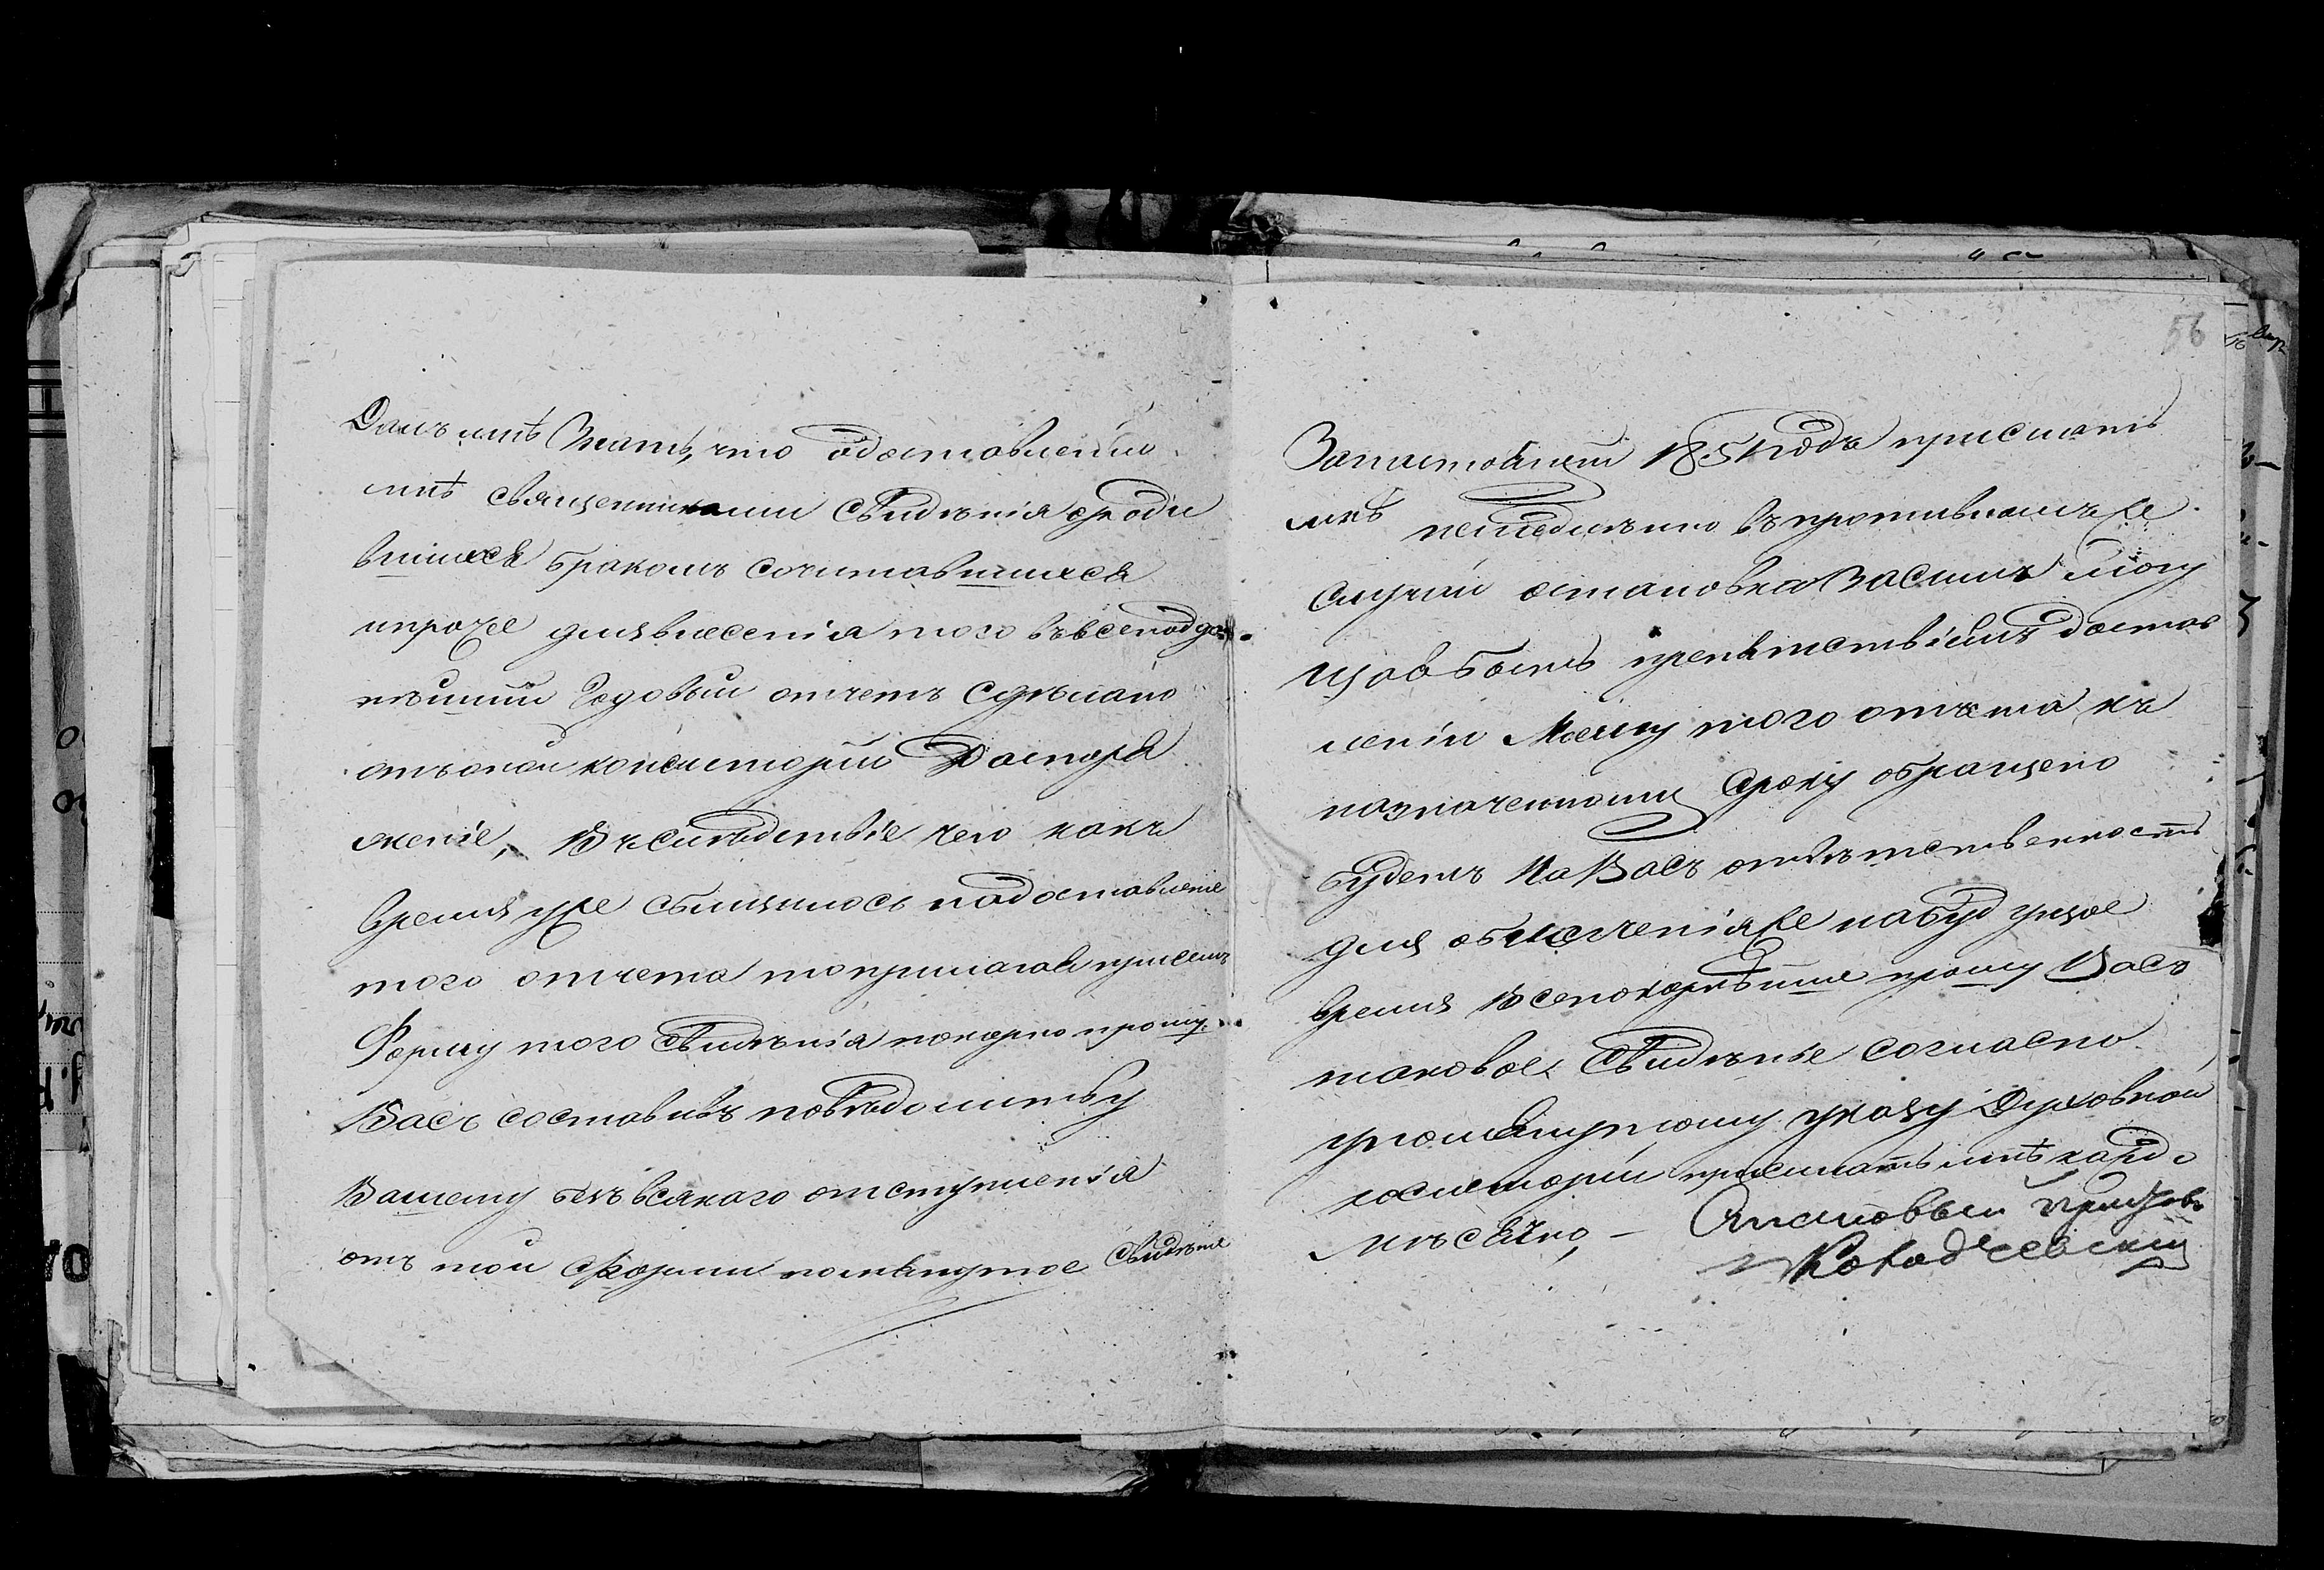 Далъ мнѣ знать, что о доставленіи
мнѣ священниками свидѣнія о роди
вшихся бракомъ сочитавшихся
и проче для внесенія того въ всеподда
нѣишій годовыи отчетъ сдѣлано
отъ оной консисторіи Распоря
женіе, Въ слѣдствіе чего какъ
время уже сблизилось надоставленіе
того отчета то прилагая присемъ
Форму того свидѣнія покорно прошу
Васъ составивъ по вѣдомству
Вашему безъ всякаго отступленія
отъ той формы помянутое свидѣніе
56
За настоящій 1851 годъ прислать
мнѣ немедлѣнно въ противномъ же
случаи остановка За симъ могу
щая быть препятствіемъ достав
леніи Моему того отчета къ
назначенному сроку обращено
будетъ На Васъ отвѣтственность
для облегченія же на будущое
время всепокорнѣйше прошу Васъ
таковое свидѣніе согласно
упомянутому указу Духовной
консисторіи присилать мнѣ каждо
мѣсячно, – Становый Приставъ